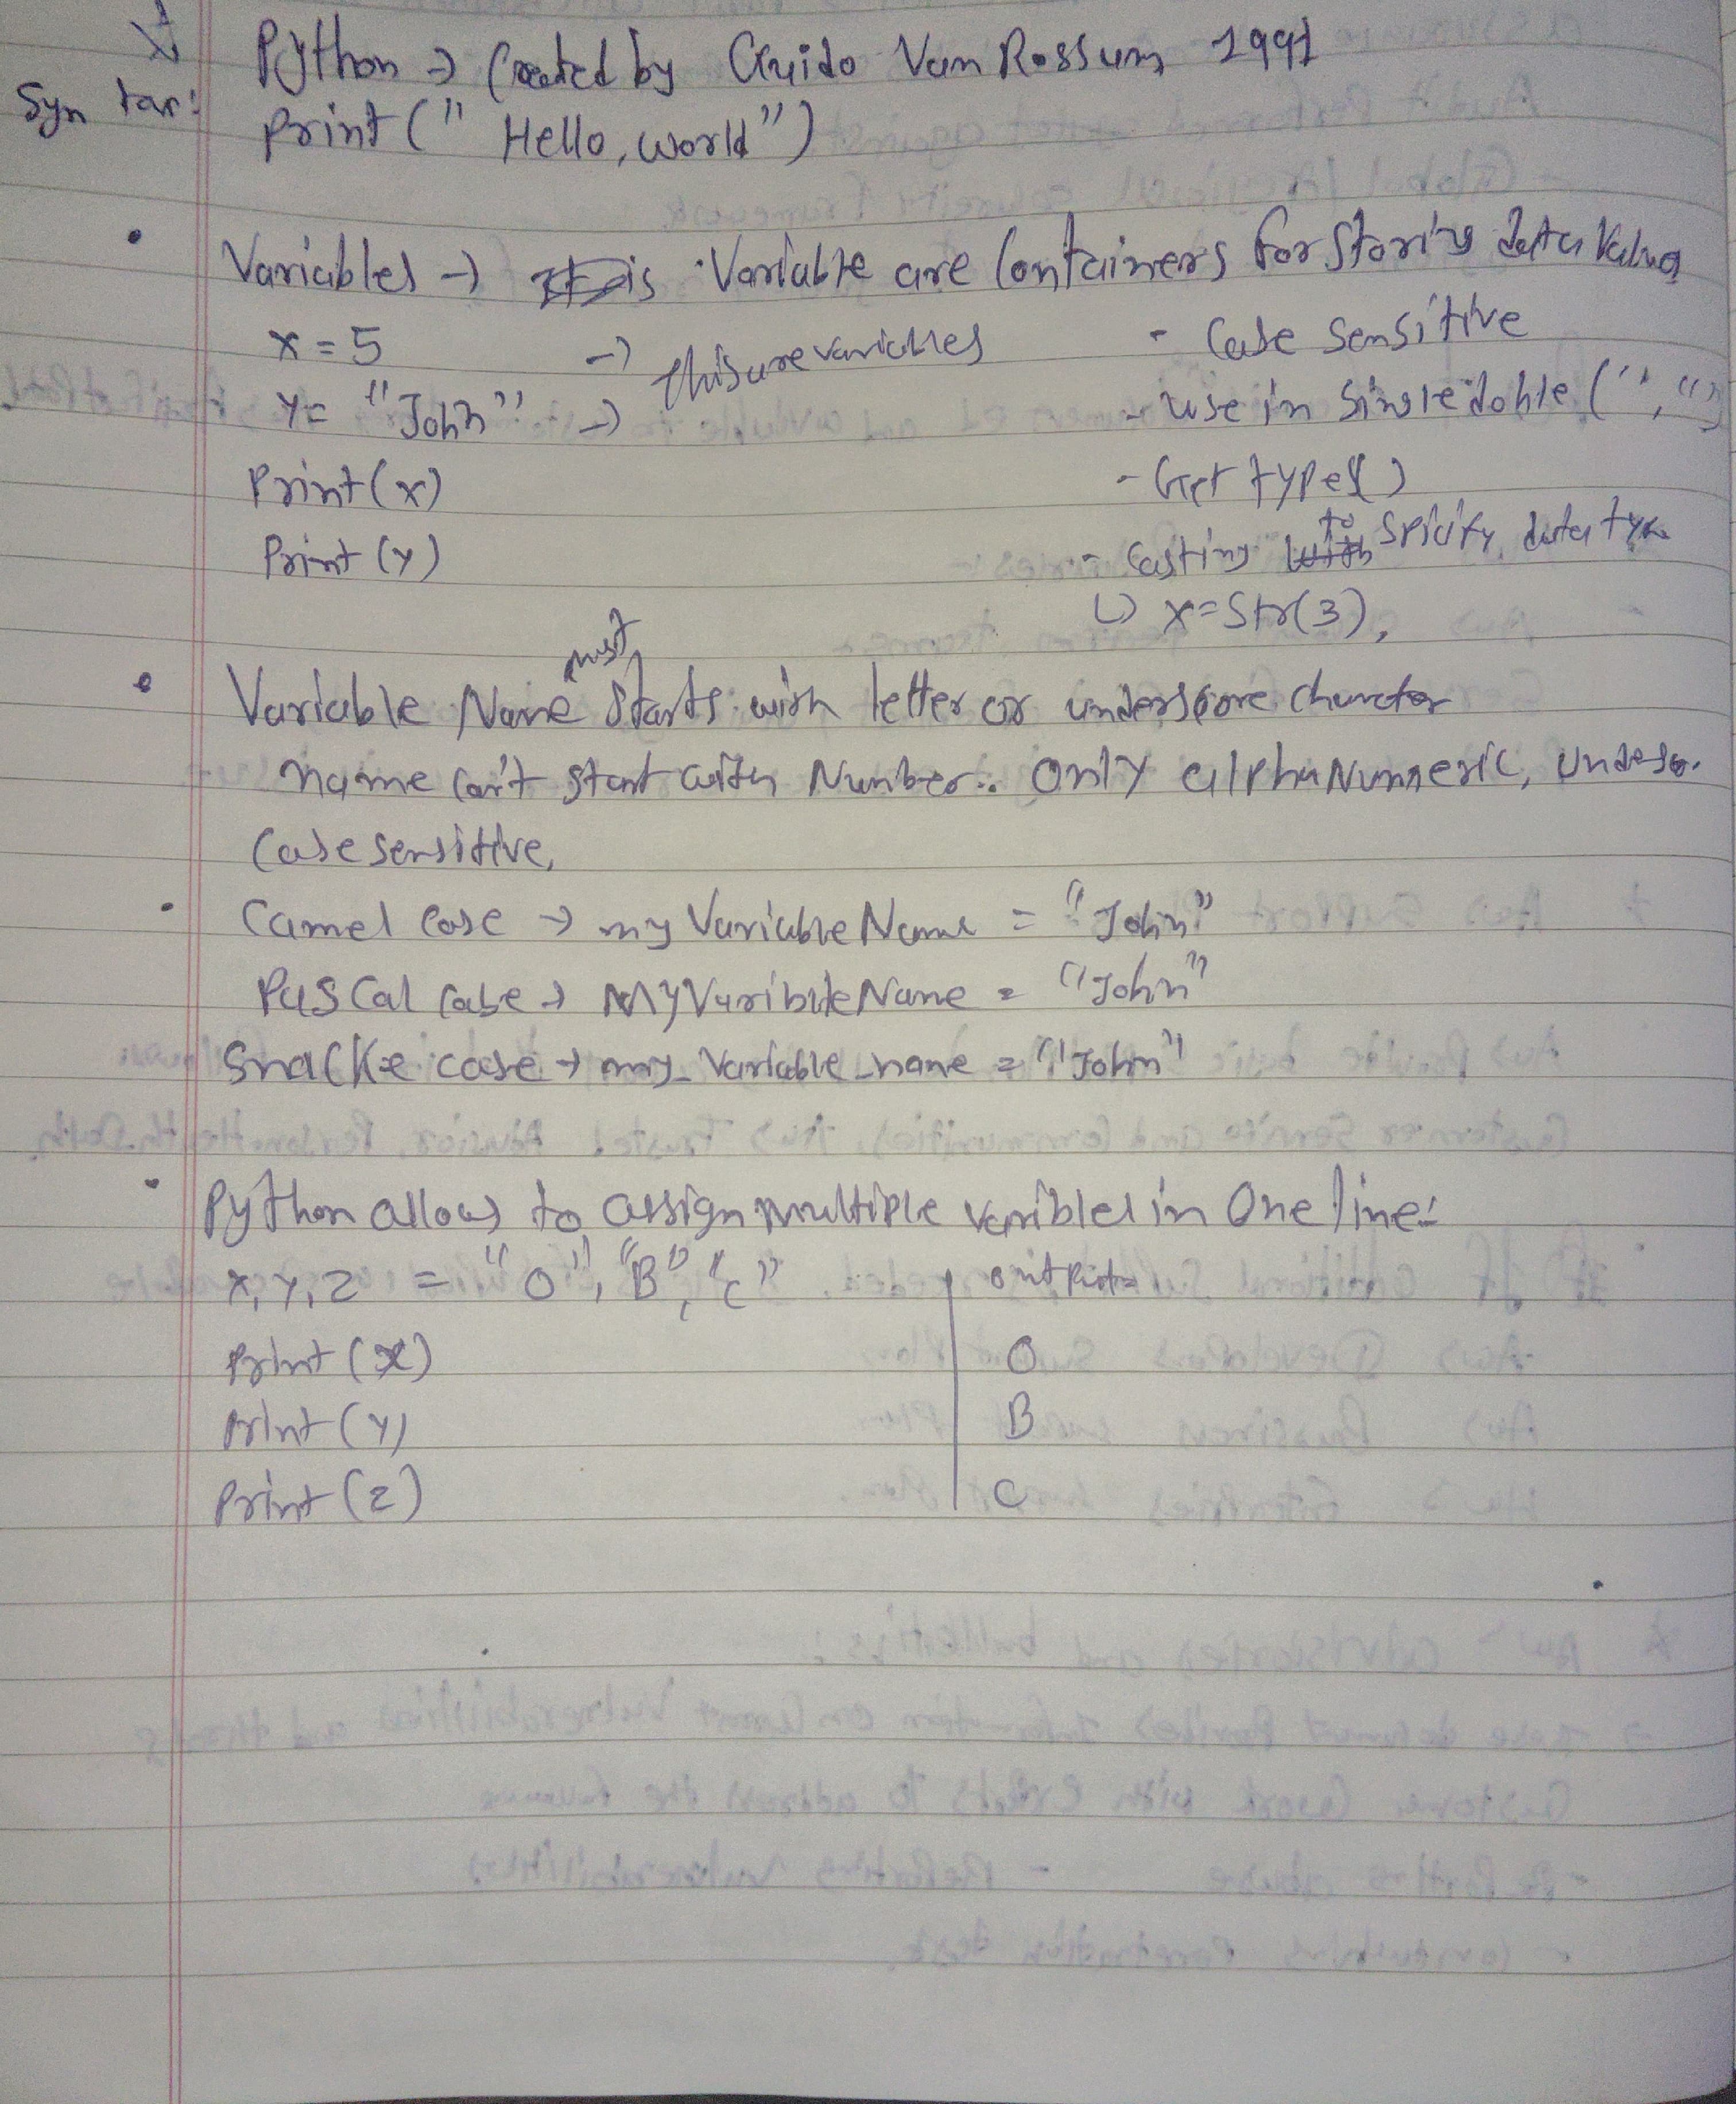 Python → Created by Guido Van Rossum 1991
Syntax:
Print (" Hello, World")
• Variables → is Variable are Containers for Storing data Value
x = 5 → this are variables - Case Sensitive
y = "John" → - use in Single doble (' ', " ")
Print (x) - Get type()
Print (y) - Casting to Spicify data type
↳ x = Str(3),
• Variable Name must Starts with letter or underscore charcter
name can't start with Number. Only alphaNumeric, Undersc.
Case sensitive,
• Camel Case → myVariableName = "John"
Pascal Case → MyVaribleName = "John"
Snacke case → my_Variable_name = "John"
• Python allows to assign multiple varibles in One line:
x, y, z = "O", "B", "C" output
Print (x) O
Print (y) B
Print (z) C